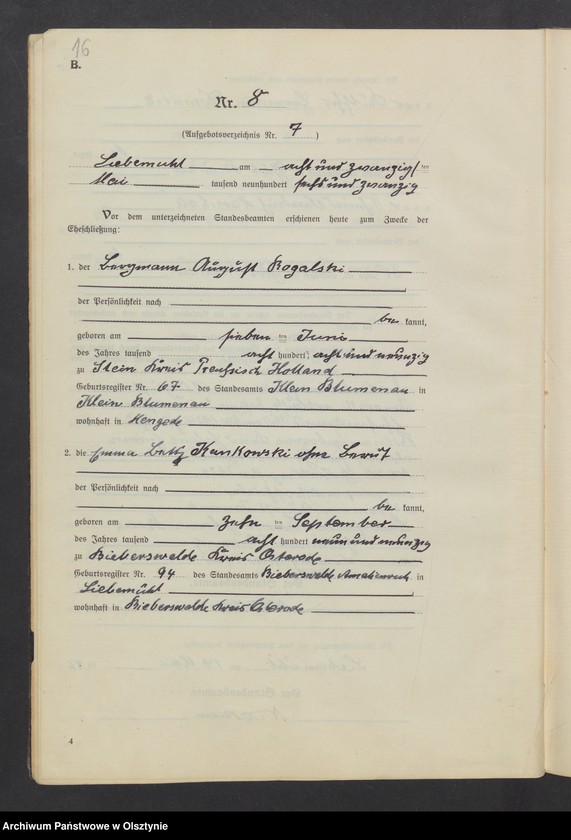 16
B.
Nr. 8
(Aufgebotsverzeichnis Nr. 7)
Liebemühl am acht und zwanzigsten
Mai tausend neunhundert sechs und zwanzig
Vor dem unterzeichneten Standesbeamten erschienen heute zum Zwecke der
Eheschließung:
1. der Bergmann August Rogalski
der Persönlichkeit nach
be kannt,
geboren am sieben ten Juni
des Jahres tausend acht hundert acht und neunzig
zu Stein Kreis Preußisch Holland
Geburtsregister Nr. 67 des Standesamts Klein Blumenau in
Klein Blumenau
wohnhaft in Mengede
2. die Emma Betty Kankowski ohne Beruf
der Persönlichkeit nach
be kannt,
geboren am zehn ten September
des Jahres tausend acht hundert neun und neunzig
zu Bieberswalde Kreis Osterode
Geburtsregister Nr. 94 des Standesamts Bieberswalde in
Liebemühl
wohnhaft in Bieberswalde Kreis Osterode
4
Archiwum Państwowe w Olsztynie